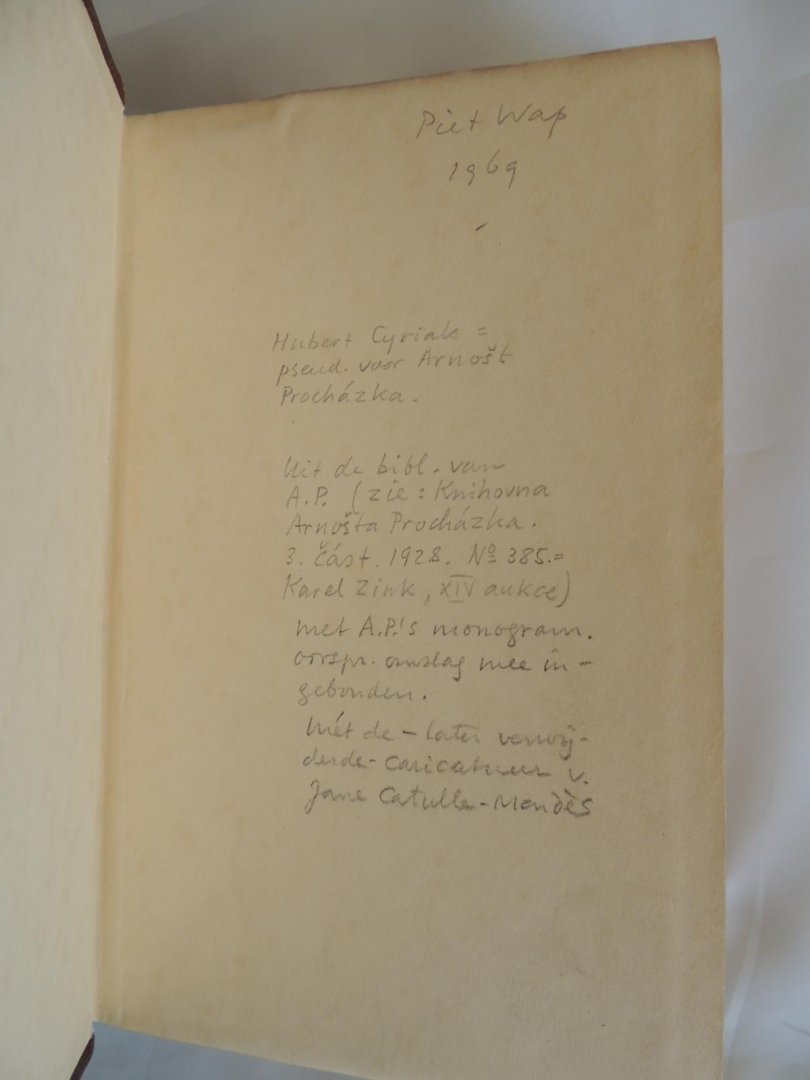 Piet Wap
1969
Hubert Cyriak =
pseud. voor Arnošt
Procházka.
Uit de bibl. van
A.P. (zie: Knihovna
Arnošta Procházka.
3. část. 1928. Nº 385.=
Karel Zink, XIV aukce)
met A.P.'s monogram.
oorspr. omslag mee in-
gebonden.
Mét de - later verwij-
derde - caricatuur v.
Jane Catulle-Mendès